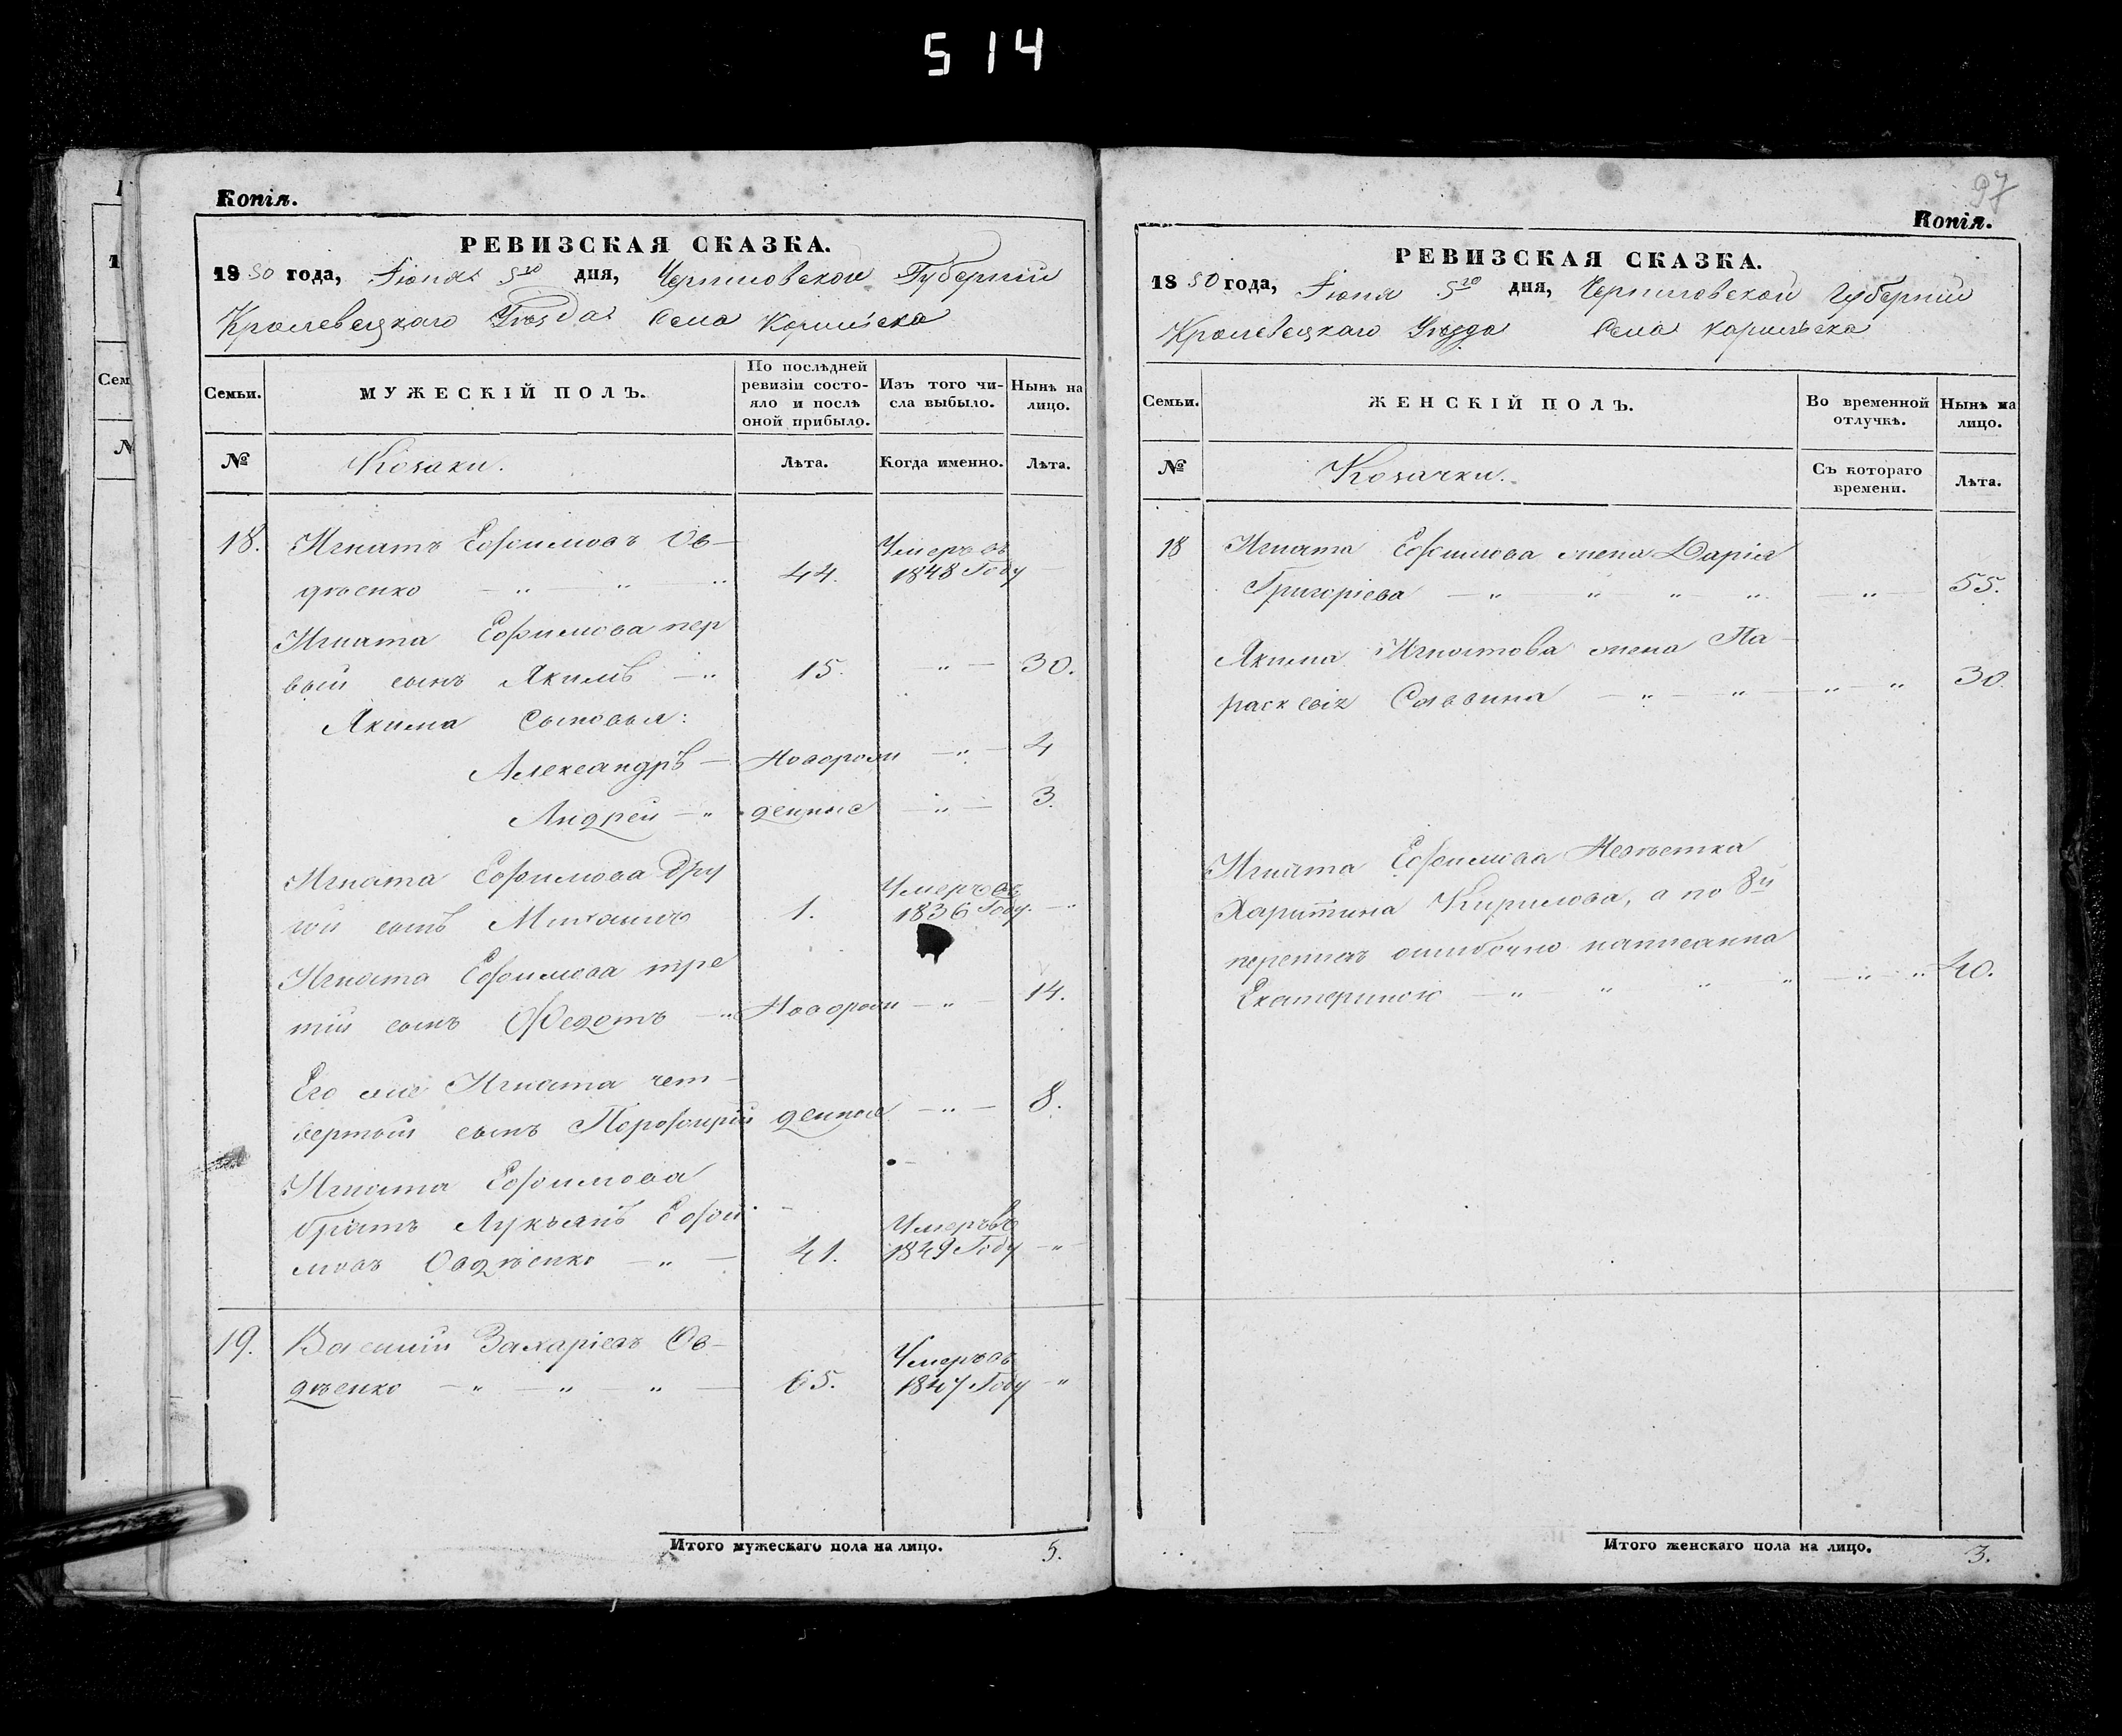 514
Копія.
РЕВИЗСКАЯ СКАЗКА.
1850 года, Іюня 5го дня, Черниговской Губерніи
Кролевецкаго Уѣзда Села
Семьи.
МУЖЕСКІЙ ПОЛЪ.
По послѣдней
ревизіи состо-
яло и послѣ
оной прибыло.
Изъ того чи-
сла выбыло.
Нынѣ на
лицо.
№
Козаки.
Лѣта.
Когда именно.
Лѣта.
18. Игнатъ Ефимовъ Ов-
дѣенко — „ — „ 44. Умеръ въ 1848 Году —
Игната Ефимова пер
вый сынъ Якимъ — „ 15. — „ — 30.
Якима Сыновья:
Александръ — Новорож — „ — 4
Андрей — „ денные — „ — 3.
Игната Ефимова Дру
гой сынъ Михаилъ 1. Умеръ въ 1836 Году. — „
Игната Ефимова тре
тій сынъ Федотъ — „ Новорож — „ — 14.
Его же Игната чет-
вертый сынъ Порфирій денные — „ — 8.
Игната Ефимова
братъ Лукьянъ Ефи-
мовъ Овдѣенко — „ — 41. Умеръ въ 1849 Году — „
19. Василій Захаріевъ Ов-
дѣенко — „ — „ „ — 65. Умеръ въ 1847 Году — „
Итого мужескаго пола на лицо. 5.
97
Копія.
РЕВИЗСКАЯ СКАЗКА.
1850 года, Іюня 5го дня, Черниговской Губерніи
Кролевецкаго Уѣзда Села
Семьи.
ЖЕНСКІЙ ПОЛЪ.
Во временной
отлучкѣ.
Нынѣ на
лицо.
№
Козачки.
Съ котораго
времени.
Лѣта.
18 Игната Ефимова жена Дарія
Григоріева — „ „ „ — „ — „ — 55.
Якима Игнатова жена Па-
раскевія Саввина — „ — „ — „ „ 30.
Игната Ефимова Невѣстка
Харитина Кирилова, а по 8й
переписи ошибочно написанна
Екатериною — „ „ „ „ — „ — „ 40.
Итого женскаго пола на лицо. 3.